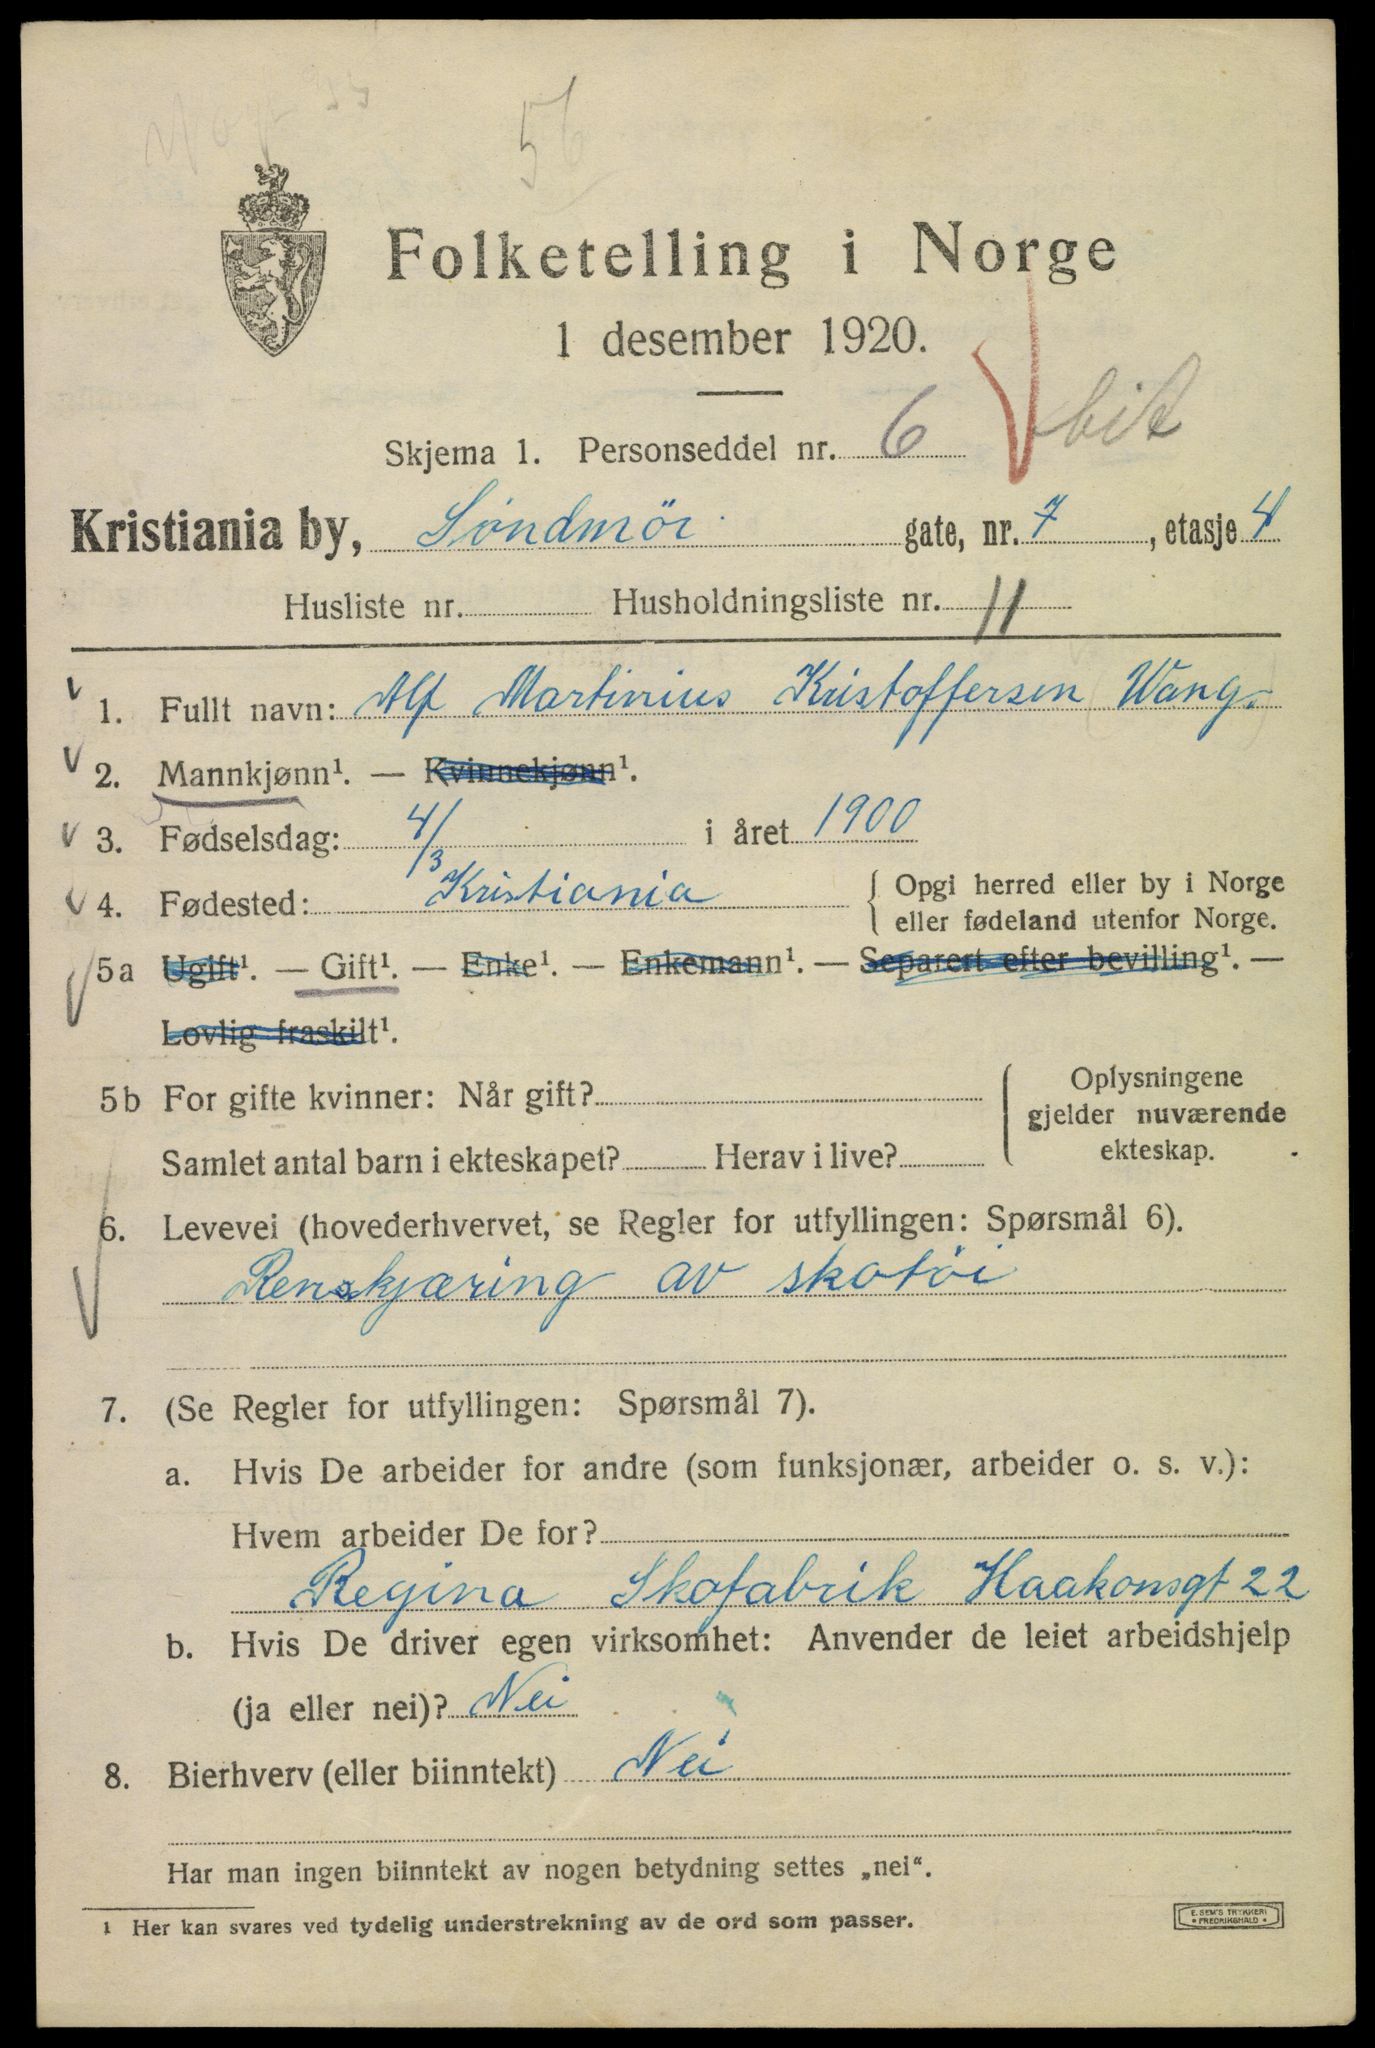 56
Folketelling i Norge
1 desember 1920.
Skjema 1. Personseddel nr. 6 bit
Kristiania by, Søndmör gate, nr. 7, etasje 4
Husliste nr. Husholdningsliste nr. 11
1. Fullt navn: Alf Martinius Kristoffersen (Wang)
2. Mannkjønn¹. — Kvinnekjønn¹.
3. Fødselsdag: 4/3 i året 1900
4. Fødested: Kristiania { Opgi herred eller by i Norge
eller fødeland utenfor Norge.
5a Ugift¹. — Gift¹. — Enke¹. — Enkemann¹. — Separert efter bevilling¹. —
Lovlig fraskilt¹.
5b For gifte kvinner: Når gift? { Oplysningene
gjelder nuværende
ekteskap.
Samlet antal barn i ekteskapet? Herav i live?
6. Levevei (hovederhvervet, se Regler for utfyllingen: Spørsmål 6).
Renskjæring av skotöi
7. (Se Regler for utfyllingen: Spørsmål 7).
a. Hvis De arbeider for andre (som funksjonær, arbeider o. s. v.):
Hvem arbeider De for?
Regina Skofabrik Haakonsgt 22
b. Hvis De driver egen virksomhet: Anvender de leiet arbeidshjelp
(ja eller nei)? Nei
8. Bierhverv (eller biinntekt) Nei
Har man ingen biinntekt av nogen betydning settes „nei“.
1 Her kan svares ved tydelig understrekning av de ord som passer.
E. SEM'S TRYKKERI
• FREDRIKSHALD •